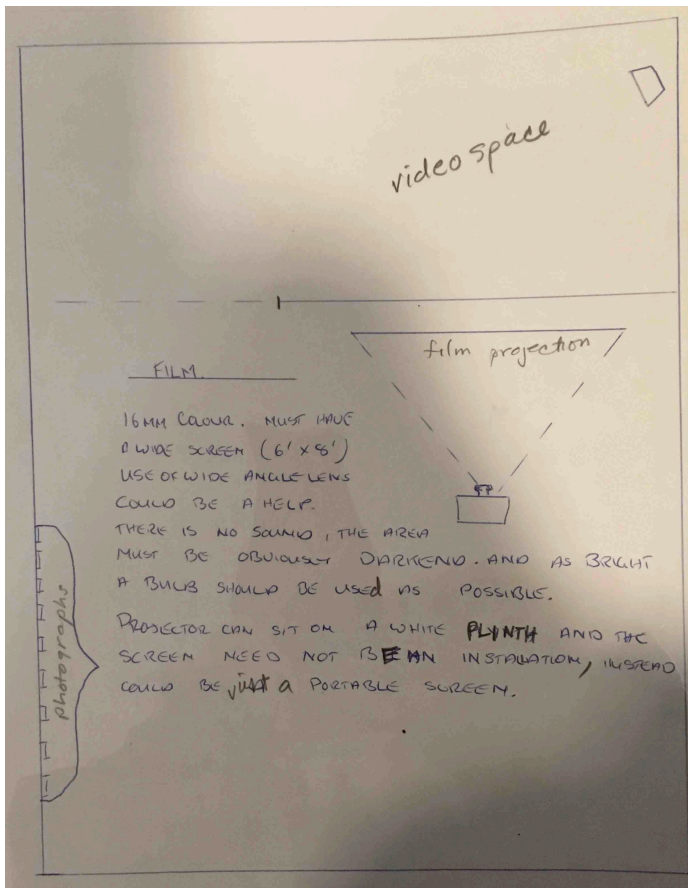 video space
film projection
FILM.
16MM COLOUR. MUST HAVE
A WIDE SCREEN (6' x 8')
USE OF WIDE ANGLE LENS
COULD BE A HELP.
THERE IS NO SOUND, THE AREA
MUST BE OBVIOUSLY DARKEND. AND AS BRIGHT
A BULB SHOULD BE USED AS POSSIBLE.
PROJECTOR CAN SIT ON A WHITE PLYNTH AND THE
SCREEN NEED NOT BE AN INSTALLATION, INSTEAD
COULD BE just a PORTABLE SCREEN.
photographs